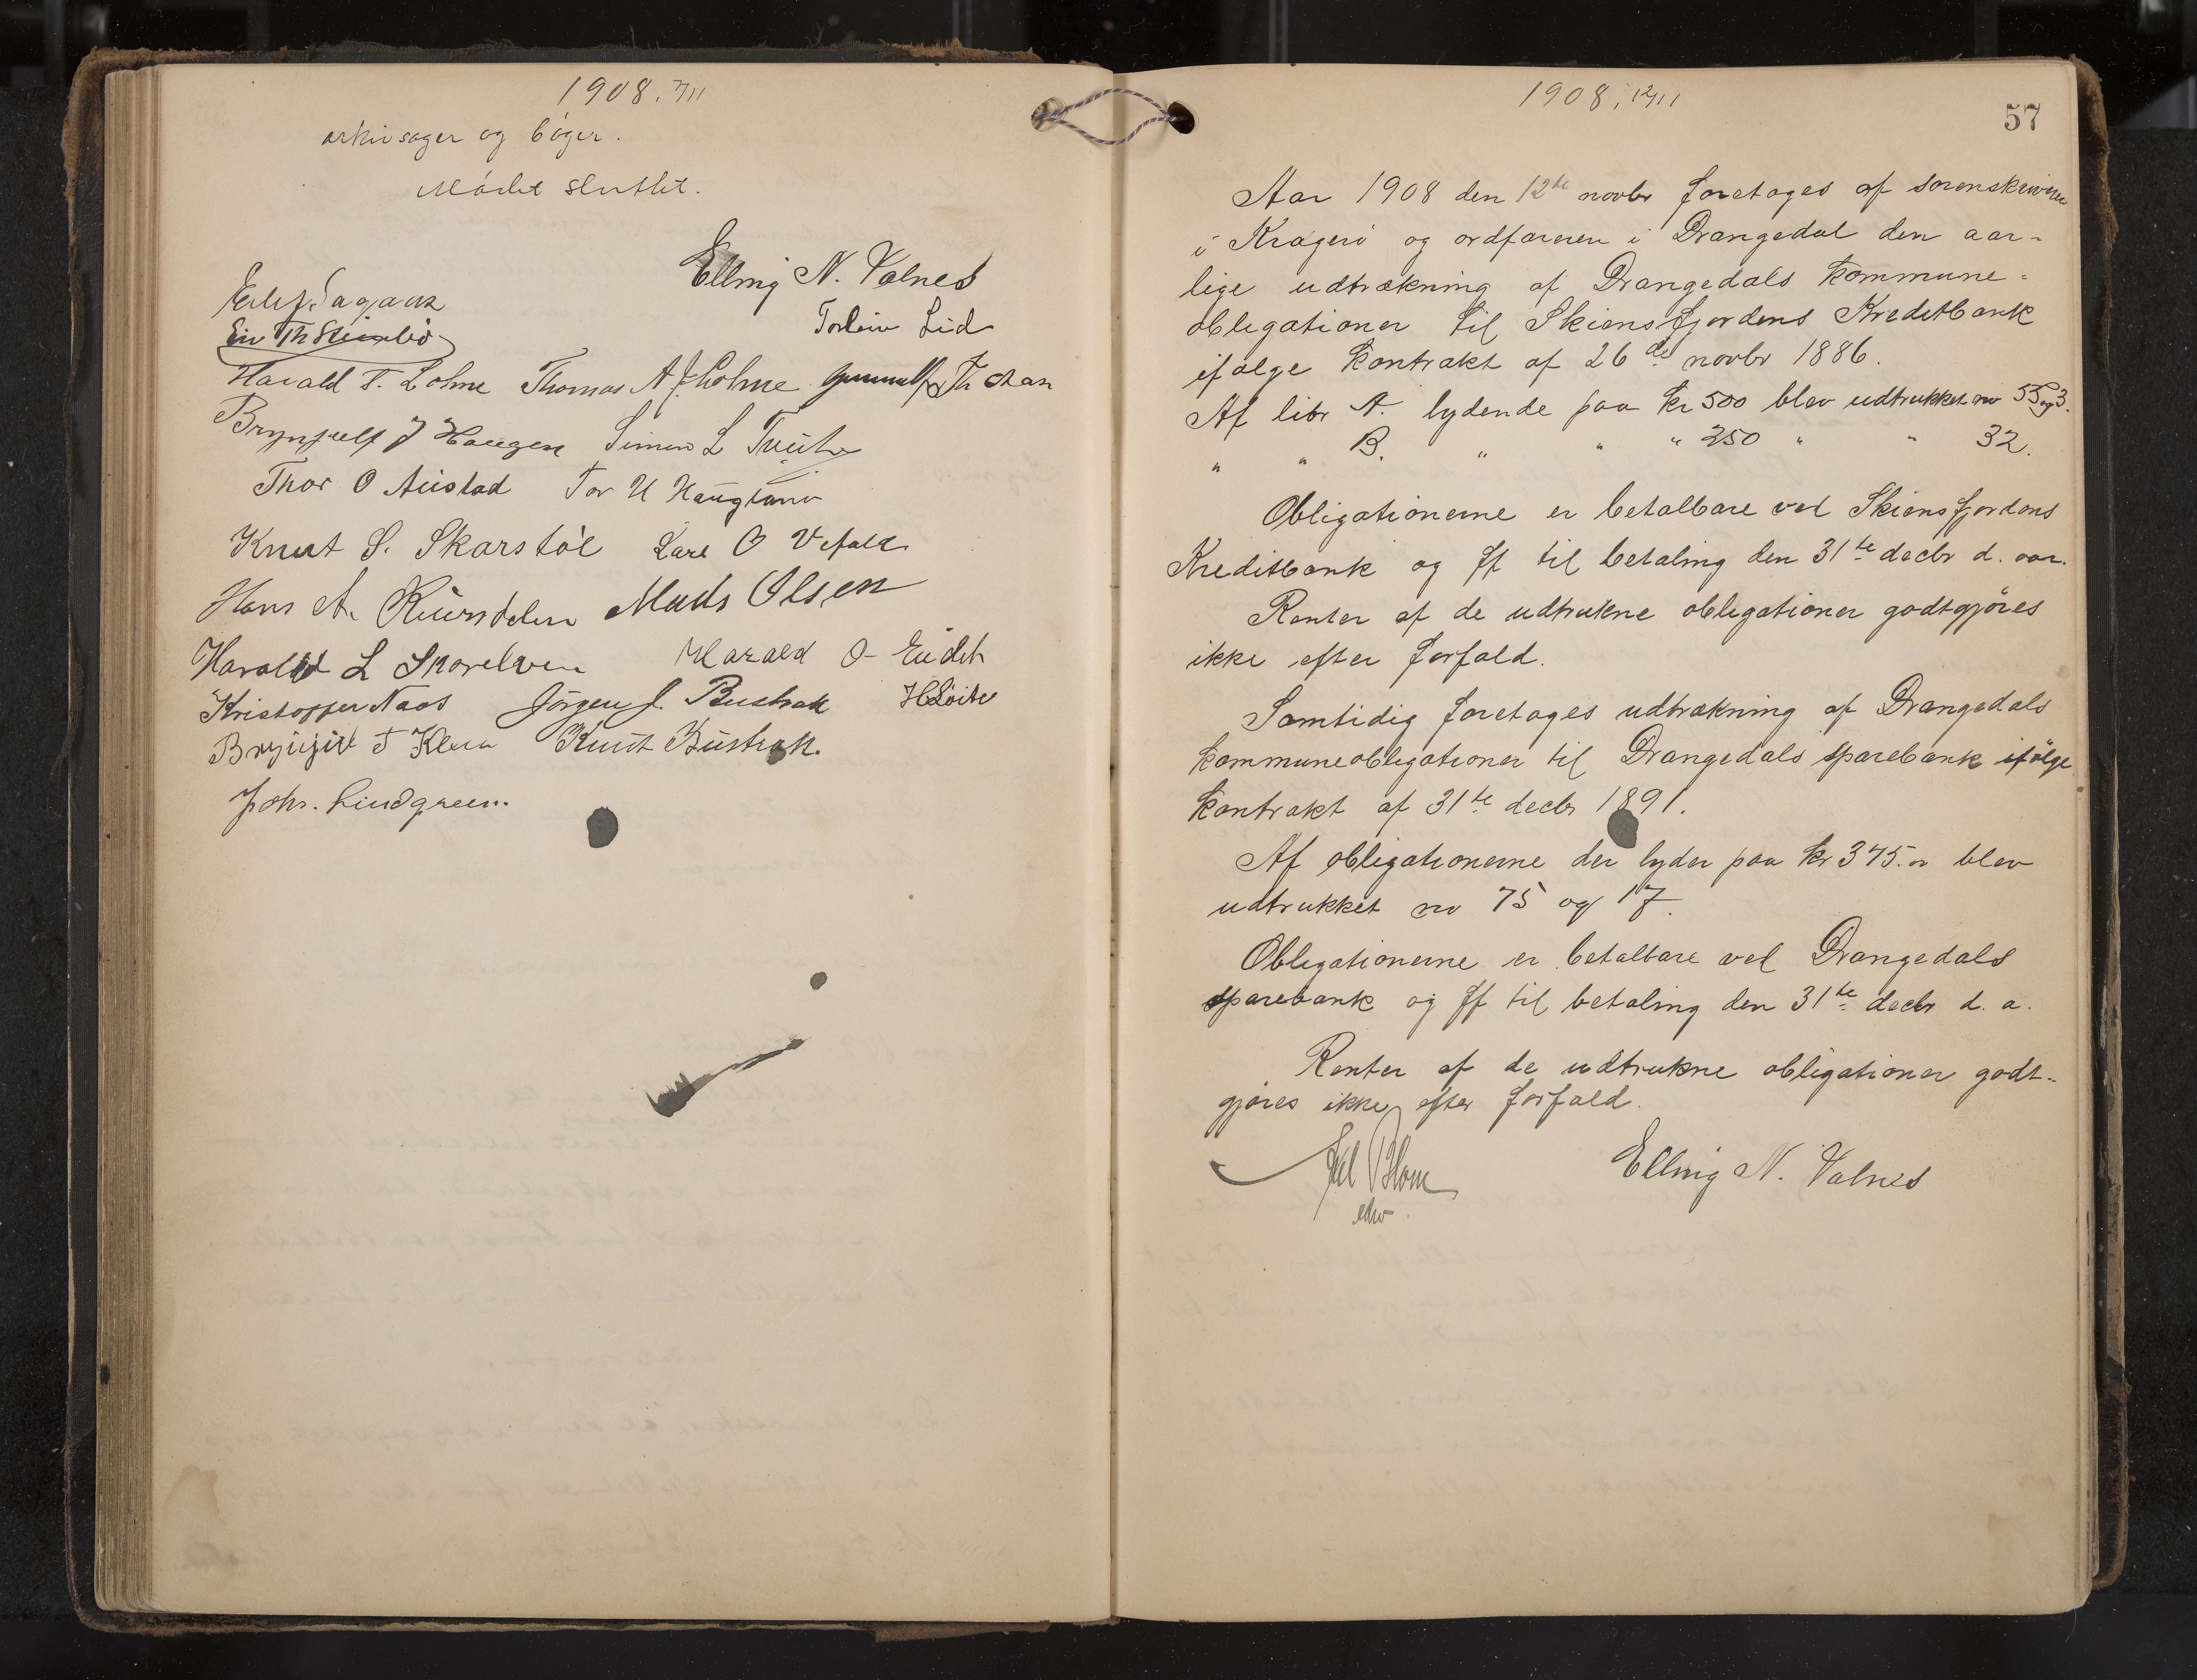 1908. 7/11
arkivsager og bøger.
Mødet sluttet.
Elling N. Valnes
Torleiv Lid
Harald T. Lohne Thomas A Lohne
Brynjulf J Haugen Simen L Tveit
Thor O Austad Tor H Haugland
Knut S. Skarstøl Karl O Vefald
Hans A. Mads Olsen
Harald L Skarelven Harald O Eudet
Kristoffer Naas Jørgen J. Bustrak H Löite
T Kleva Knut Bustrak.
Johs. Lindgreen.
1908, 12/11
57
Aar 1908 den 12te novbr foretoges af sorenskriveren
i Kragerø og ordføreren i Drangedal den aar-
lige udtrækning af Drangedals kommune-
obligationer til Skiensfjordens Kreditbank
ifølge kontrakt af 26de novbr 1886.
Af litr A. lydende paa kr 500 blev udtrukket no 55 og 3.
" " B. " " " 250 " " 32.
Obligationerne er betalbare ved Skiensfjordens
Kreditbank og ff til betaling den 31te decbr d. aar.
Renter af de udtrukne obligationer godtgjøres
ikke efter forfald.
Samtidig foretoges udtrækning af Drangedals
kommuneobligationer til Drangedals sparebank ifølge
kontrakt af 31te decbr 1891.
Af obligationerne der lyder paa kr 375.00 blev
udtrukket no 75 og 17.
Obligationerne er betalbare ved Drangedals
sparebank og ff til betaling den 31te decbr d. a.
Renter af de udtrukne obligationer godt-
gjøres ikke efter forfald.
Blom Elling N. Valnes